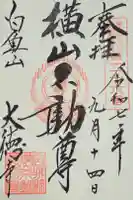 奉拝
令和七年
九月十四日
横山不動尊
白魚山
大徳寺